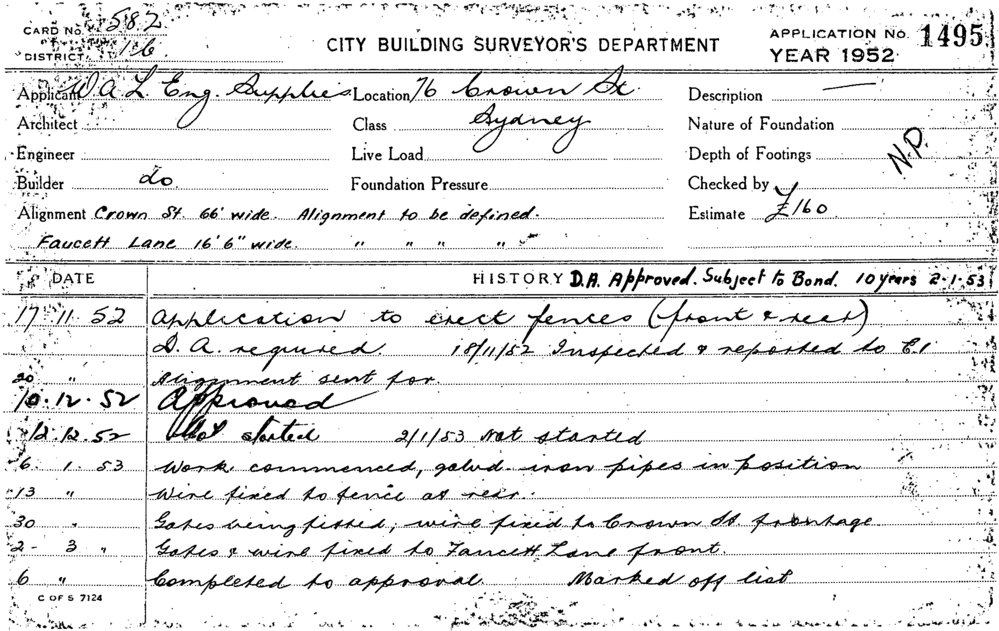 CARD No. 582
DISTRICT 16
CITY BUILDING SURVEYOR'S DEPARTMENT
APPLICATION No. 1495
YEAR 1952
Applicant W A L Eng. Supplies Location 76 Crown St. Description —
Architect Class Sydney Nature of Foundation
Engineer Live Load Depth of Footings N.P.
Builder do Foundation Pressure Checked by
Alignment Crown St. 66' wide. Alignment to be defined. Estimate £160
Faucett Lane 16' 6" wide. " " " "
DATE HISTORY D.A. Approved. Subject to Bond. 10 years 2-1-53
17 11 52 Application to erect fences (front & rear)
D. A. required. 18/11/52 Inspected & reported to C.I
20 " Alignment sent for.
10.12.52 Approved
12.12.52 Not started 2/1/53 Not started
6 1 53 Work commenced, galvd iron pipes in position
13 " Wire fixed to fence at rear.
30 " Gates being fitted, wire fixed to Crown St frontage
2- 3 " Gates & wire fixed to Faucett Lane front.
6 " Completed to approval Marked off list
C OF S 7124